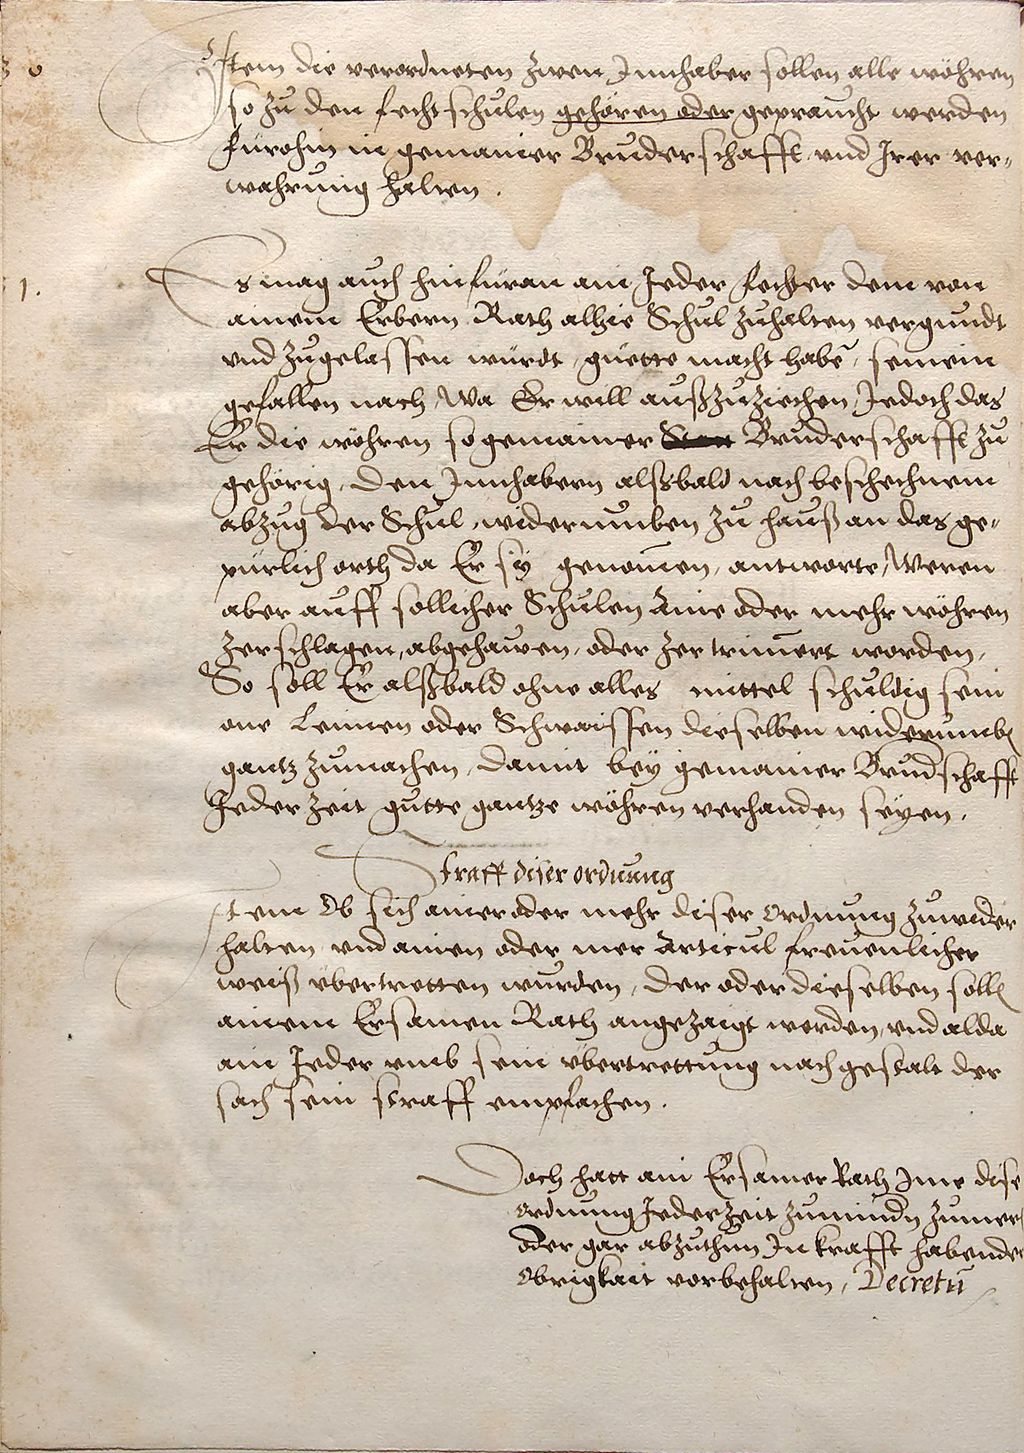 Item die verordneten zwen Innhaber sollen alle wöhren
so zu den fechtschulen gehören oder gepraucht werden
fürohin in gemainer Bruderschafft vnd Irer ver-
wahrung halten.
1.
Es mag auch hinfüran ain Jeder fechter dem von
ainem Erbern Rath alhie Schul zuhalten vergundt
vnd zugelassen würdt, guette macht habē, seinem
gefallen nach, Wa Er will außzuziechen, Jedoch das
Er die wöhren so gemainer Bruderschafft zu
gehörig, den Innhabern alßbald nach beschechnem
abzug der Schul, widerumben zu hauß an das ge-
pürlich orth da Er sy genom̄en, antworte, Weren
aber auff sollicher Schulen Aine oder mehr wöhren
zerschlagen, abgehawen, oder zertrim̄ert worden,
So soll Er alßbald ohne alles mittel schuldig sein
one Leimen oder Schwaissen dieselben widerumb
gantz zumachen, damit bey gemainer Brudschafft
Jeder zeit gutte gantze wöhren verhanden seyen.
Straff diser ordnung
Item Ob sich ainer oder mehr diser Ordnung zuwider
halten vnd ainen oder mer Articul freuenlicher
weiß übertretten wurden, der oder dieselben solln
ainem Ersamen Rath angezaigt werden, vnd alda
ain Jeder vmb sein übertrettung nach gestalt der
sach sein straff empfachen.
Doch hatt ain Ersamer Rath Ime dise
ordnung Jeder zeit zumindn zumern
oder gar abzuthun In krafft habender
Obrigkait vorbehalten, Decretū